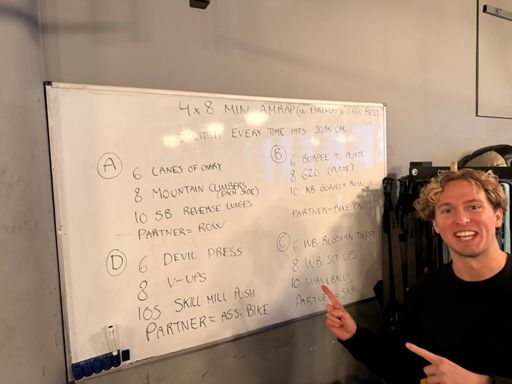 4 x 8 MIN AMRAP (w. PARTNER) + 1 MIN REST
EVERY TIME HITS 20/15 CAL
A
6 LANES OF CARRY
8 MOUNTAIN CLIMBERS
(EACH SIDE)
10 SB REVERSE LUNGES
PARTNER = ROW
B
6 BURPEE TO PLATE
8 G2O (PLATE)
10 KB GORILLA ROW
PARTNER = BIKE
D
6 DEVIL PRESS
8 V-UPS
10S SKILL MILL PUSH
PARTNER = ASS. BIKE
C
6 WB RUSSIAN TWIST
8 WB SIT UPS
10 WALLBALLS
PARTNER = SKI